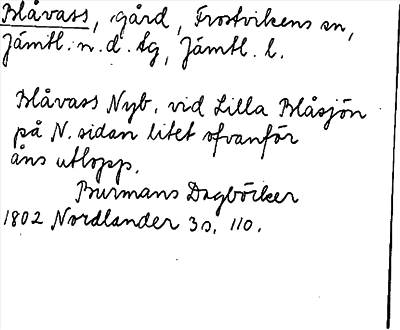 Blåvass, gård, Frostvikens sn,
Jämtl. n. d. tg, Jämtl. l.
Blåvass Nyb. vid Lilla Blåsjön
på N. sidan litet ofvanför
åns utlopp.
Burmans Dagböcker
1802 Nordlander 3s. 110.